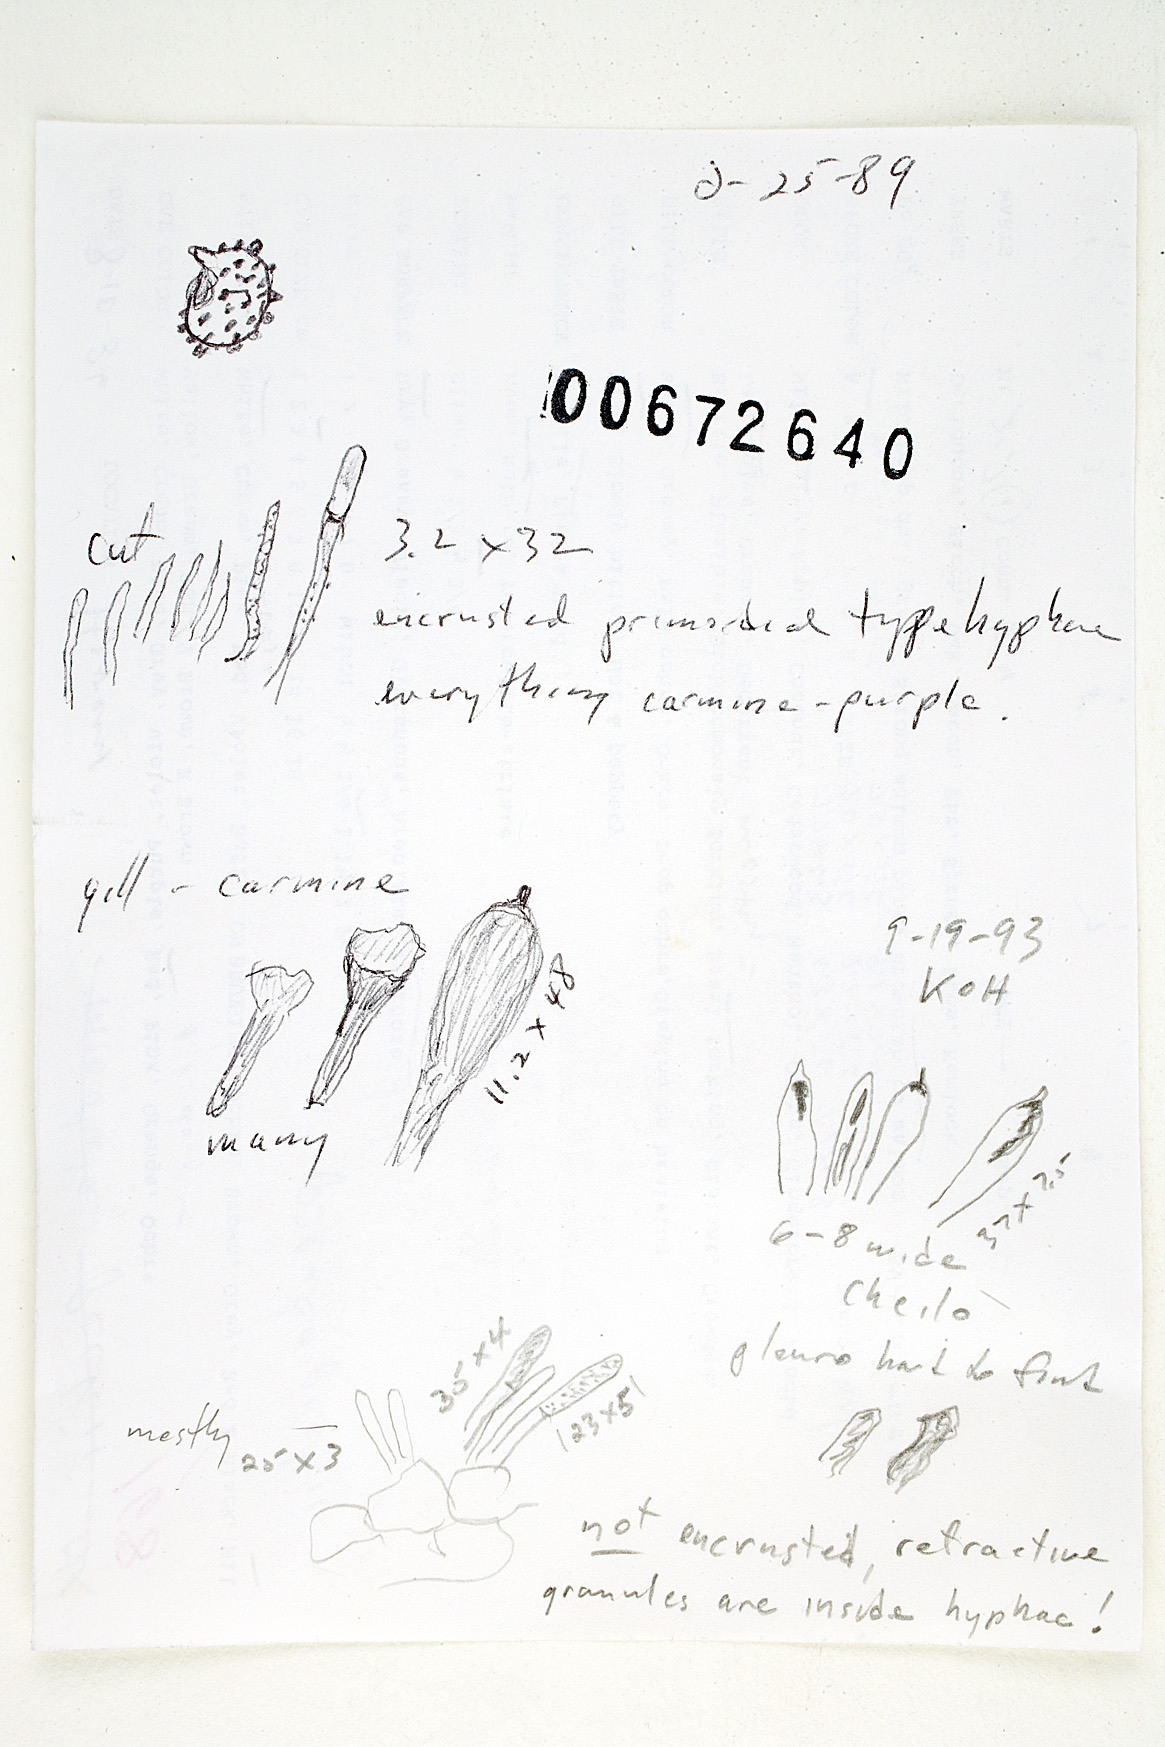 2-25-89
00672640
cut
3.2 x 32
encrusted primordial type hyphae
everything carmine-purple.
gill - carmine
11.2 x 48
many
9-19-93
KOH
37 x 7.5
6-8 wide
cheilo
pleuro hard to find
35 x 4
23 x 5
mostly 25 x 3
not encrusted, refractive
granules are inside hyphae!